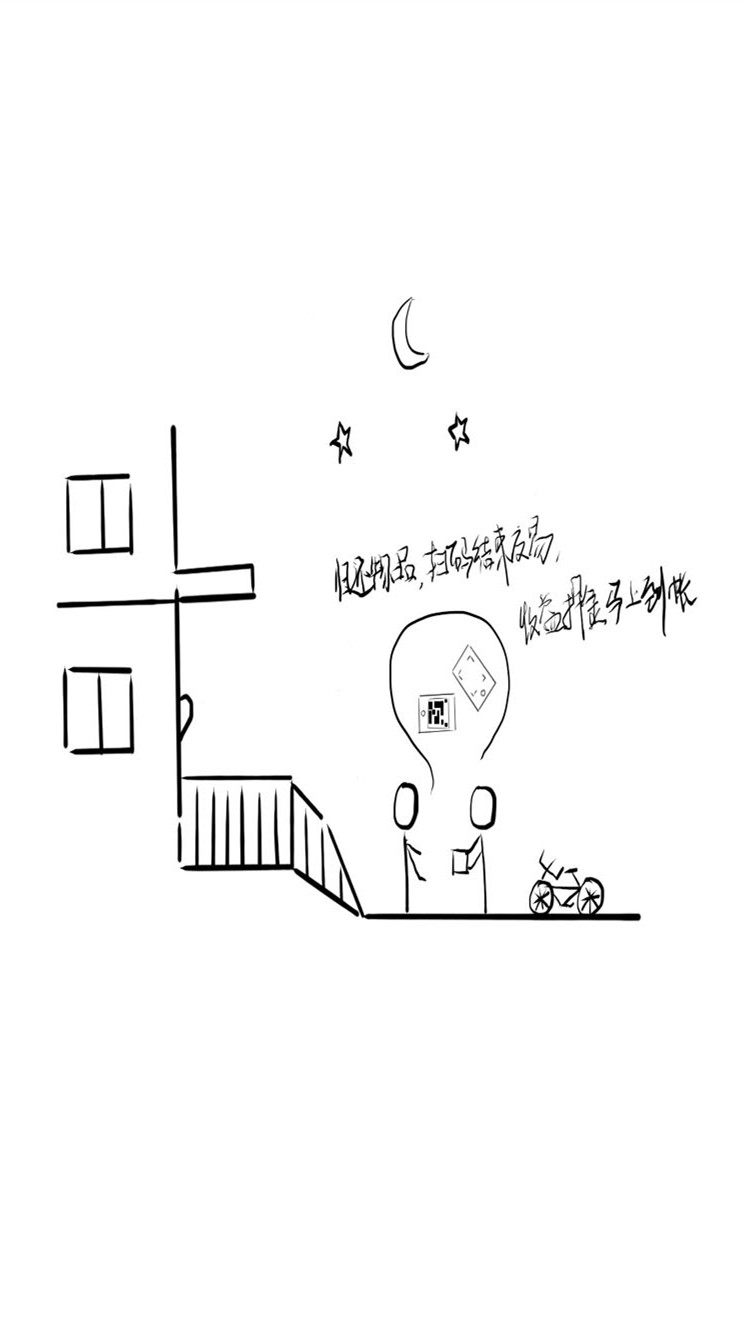 归还物品,扫码结束交易,
收益押金马上到帐